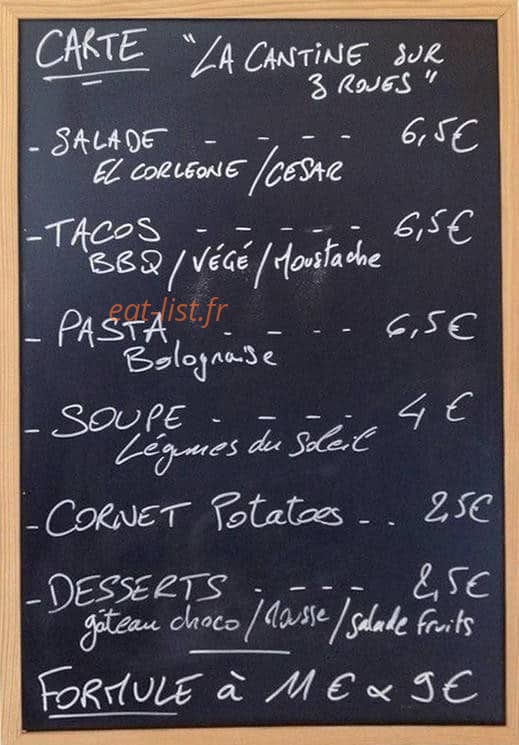 CARTE "LA CANTINE SUR
3 ROUES"
- SALADE - - - - 6,5€
EL CORLEONE / CESAR
- TACOS - - - - - 6,5€
BBQ / VÉGÉ / Moustache
eat-list.fr
- PASTA - - - - 6,5€
Bolognaise
- SOUPE - - - - 4 €
Légumes du Soleil
- CORNET Potatoes - - 2,5€
- DESSERTS - - - - 2,5€
gâteau choco / Mousse / Salade Fruits
FORMULE à 11 € & 9 €